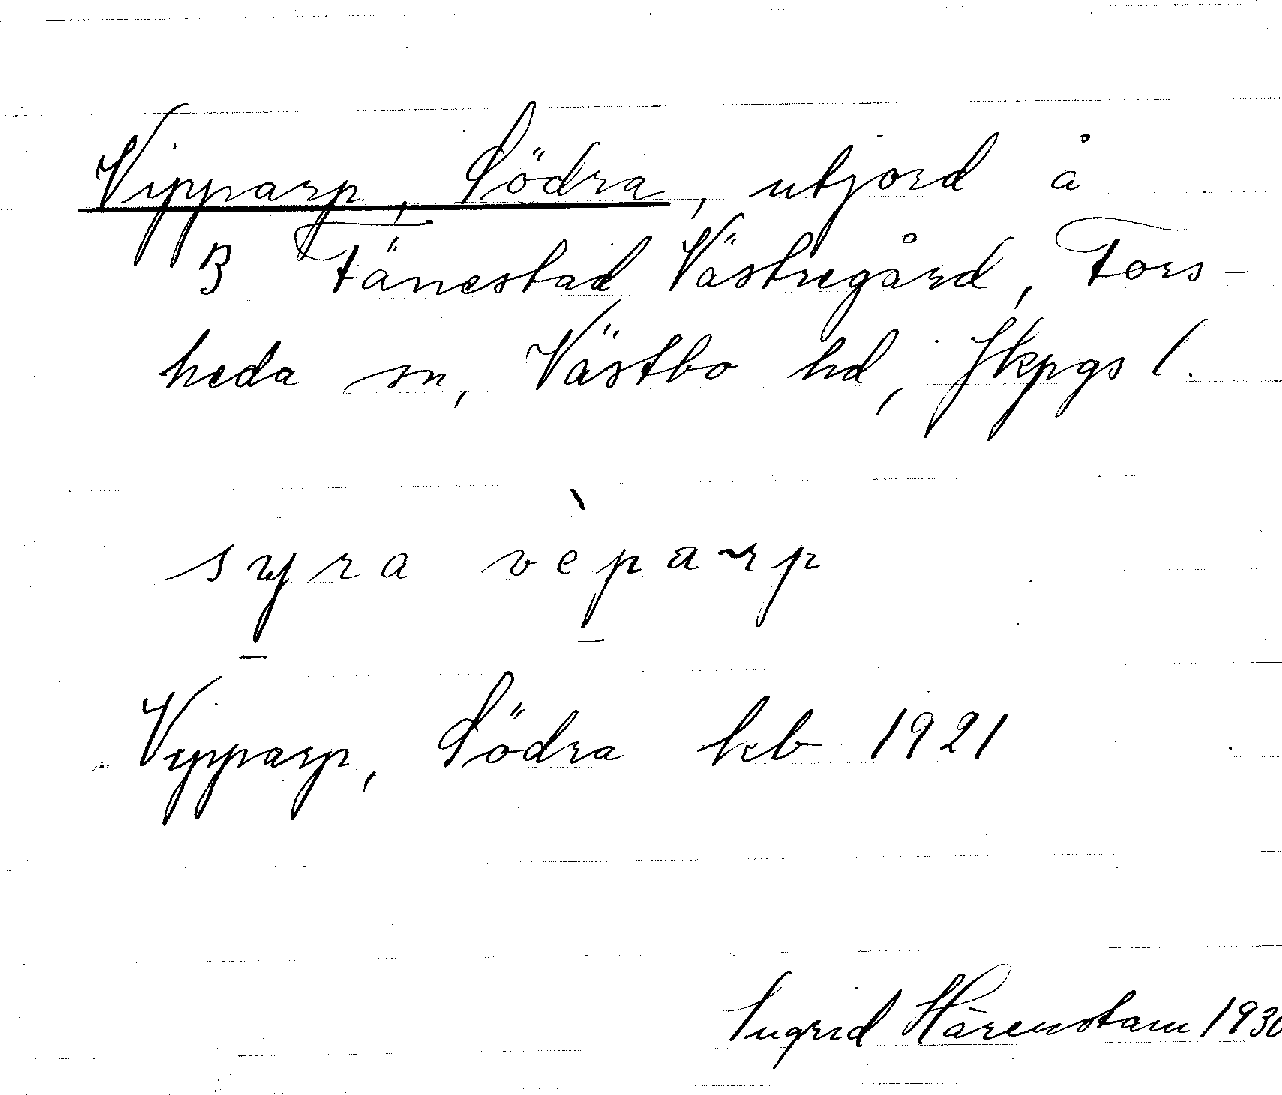 Vipparp, Södra, utjord å
B Tånestad Västregård, Fors-
heda sn, Västbo hd, Jkpgs l.
syra vèparp
Vypparp, Södra kb 1921
Ingrid Härenstam 1930